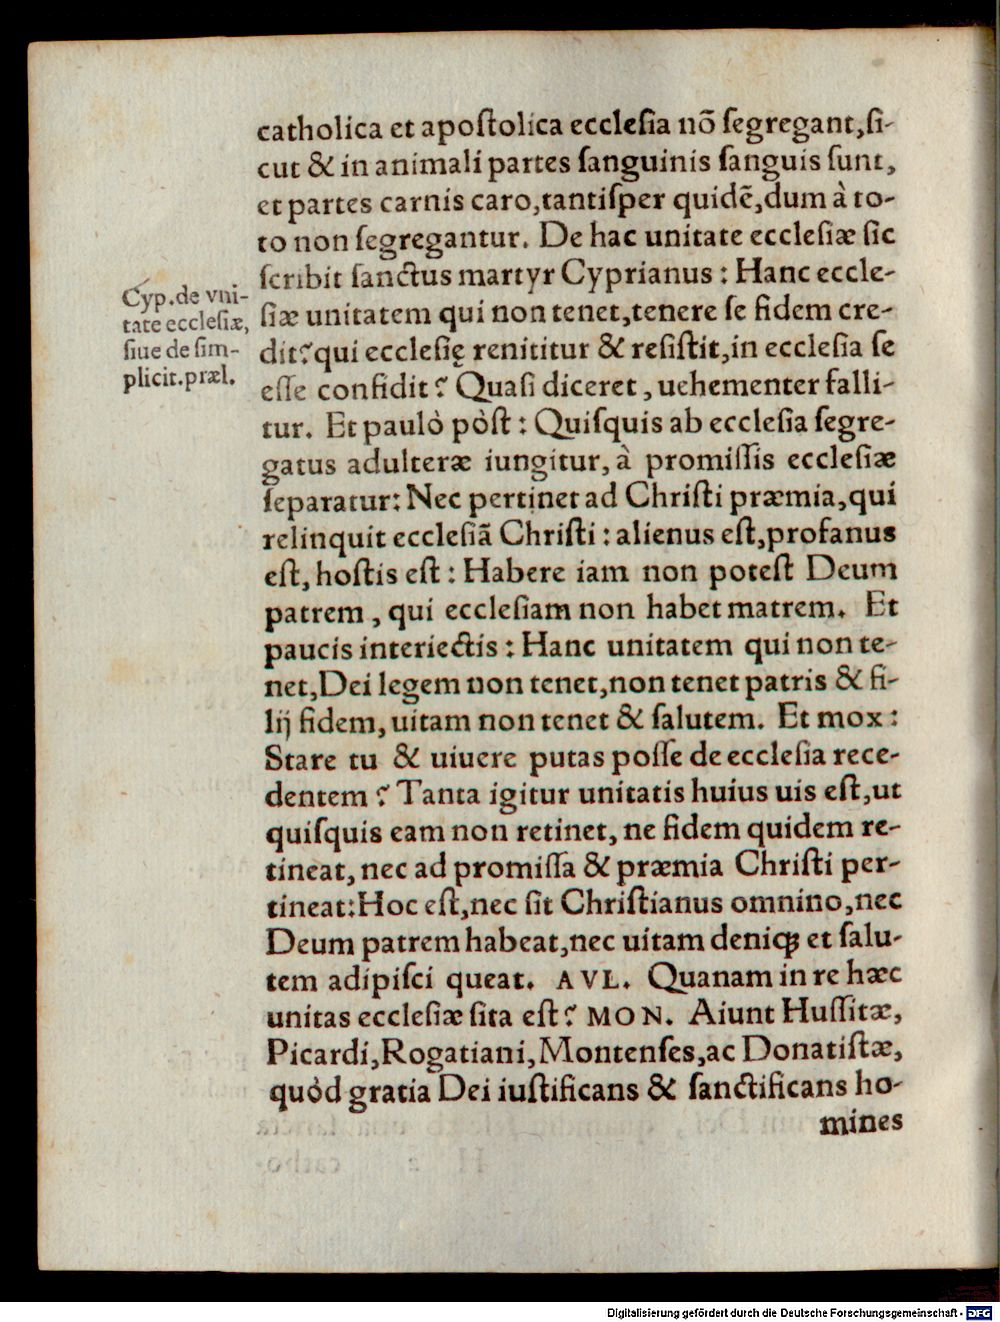 catholica et apoſtolica eccleſia nõ ſegregant,ſi-
cut & in animali partes ſanguinis ſanguis ſunt,
et partes carnis caro,tantiſper quidẽ,dum à to-
to non ſegregantur. De hac unitate eccleſiæ ſic
ſcribit ſanctus martyr Cyprianus : Hanc eccle-
ſiæ unitatem qui non tenet,tenere ſe fidem cre-
dit?qui eccleſię renititur & reſiſtit,in eccleſia ſe
eſſe confidit? Quaſi diceret, uehementer falli-
tur. Et paulò pòſt : Quiſquis ab eccleſia ſegre-
gatus adulteræ iungitur, à promiſſis eccleſiæ
ſeparatur: Nec pertinet ad Chriſti præmia,qui
relinquit eccleſiã Chriſti : alienus eſt,profanus
eſt, hoſtis eſt : Habere iam non poteſt Deum
patrem, qui eccleſiam non habet matrem. Et
paucis interiectis : Hanc unitatem qui non te-
net,Dei legem non tenet,non tenet patris & fi-
lij fidem, uitam non tenet & ſalutem. Et mox :
Stare tu & uiuere putas poſſe de eccleſia rece-
dentem? Tanta igitur unitatis huius uis eſt,ut
quiſquis eam non retinet, ne fidem quidem re-
tineat, nec ad promiſſa & præmia Chriſti per-
tineat:Hoc eſt,nec ſit Chriſtianus omnino,nec
Deum patrem habeat,nec uitam deniqꝫ et ſalu-
tem adipiſci queat. AVL. Quanam in re hæc
unitas eccleſiæ ſita eſt? MON. Aiunt Huſſitæ,
Picardi,Rogatiani,Montenſes,ac Donatiſtæ,
quòd gratia Dei iuſtificans & ſanctificans ho-
mines
Cyp.de vni-
tate eccleſiæ,
ſiue de ſim-
plicit.præl.
Digitalisierung gefördert durch die Deutsche Forschungsgemeinschaft - DFG